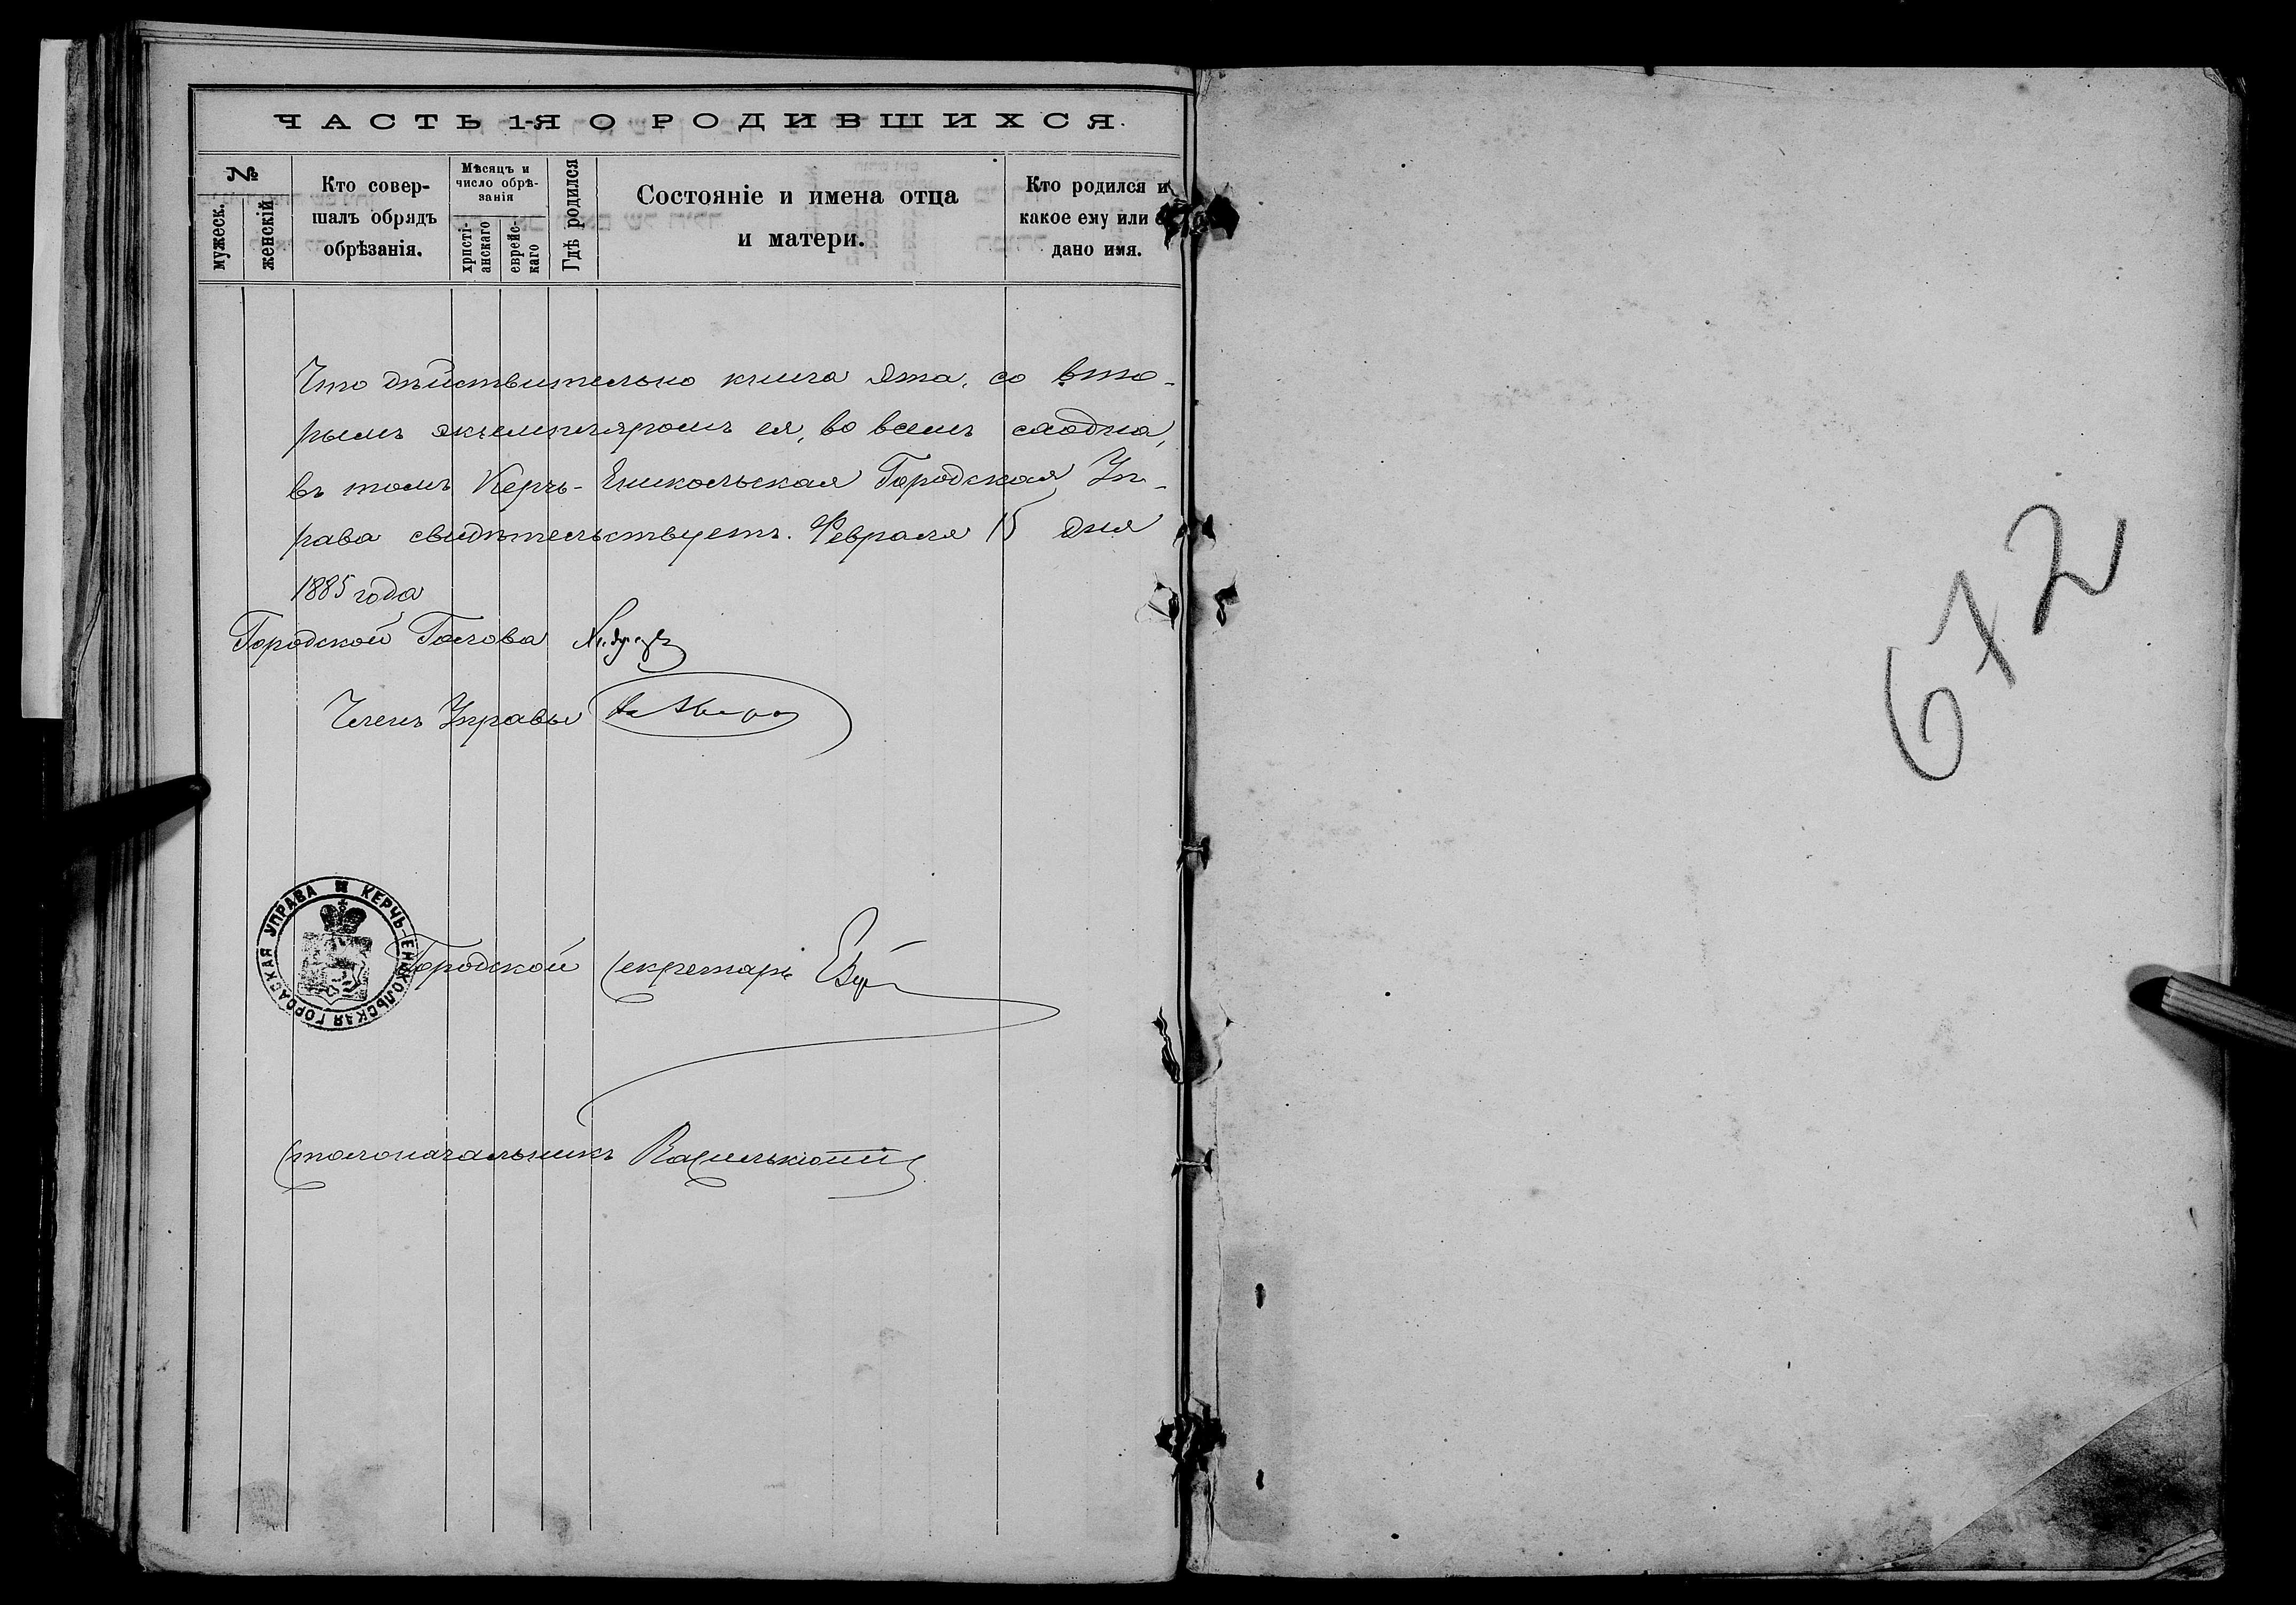 ЧАСТЬ 1-Я О РОДИВШИХСЯ.
№
мужеск.
женскій
Кто совер-
шалъ обрядъ
обрѣзанія.
Мѣсяцъ и
число обрѣ-
занія
христі-
анскаго
еврейс-
каго
Гдѣ родился
Состояніе и имена отца
и матери.
Кто родился и
какое ему или
дано имя.
Что дѣйствительно книга эта, со вто-
рымъ экземпляромъ ея, во всемъ сходна,
въ томъ Керчь-Еникольская Городская Уп-
рава свидѣтельствуетъ. Февраля 15 дня
1885 года
Городской Голова
Членъ Управы
КЕРЧЬ-ЕНИКОЛЬСКАЯ ГОРОДСКАЯ УПРАВА
Городской Секретарь
Столоначальникъ
672